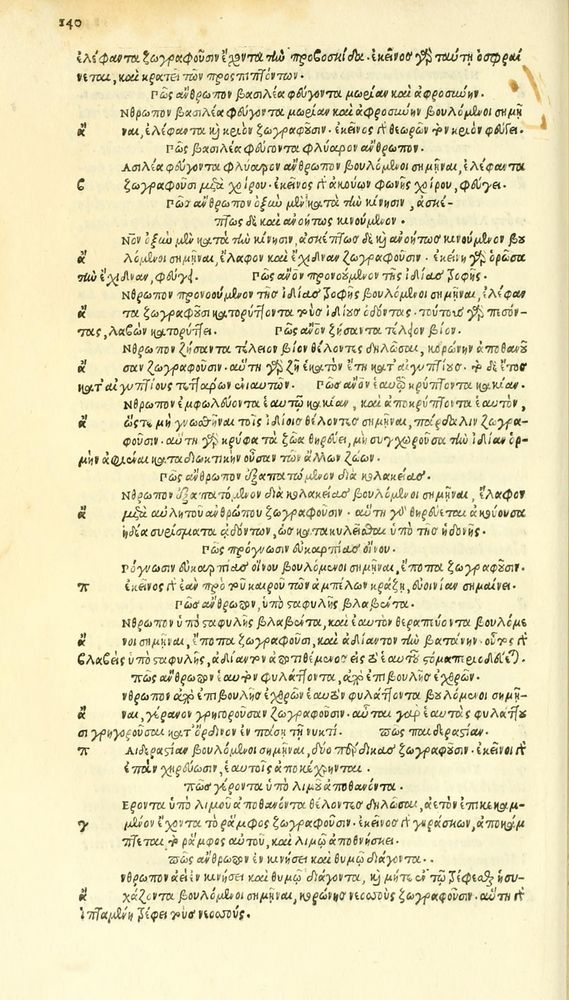 140
ἐλέφαντα ζωγραφοῦσιν ἔχοντα τὴν προβοσκίδα· ἐκεῖνος γὰρ ταύτῃ ὀσφραί
νεται, καὶ κρατεῖ τῶν προσπιπτόντων.
Πῶς ἄνθρωπον βασιλέα φεύγοντα μωρίαν καὶ ἀφροσύνην.
Νθρωπον βασιλέα φεύγοντα μωρίαν καὶ ἀφροσύνην βουλόμενοι σημῆ
ἄ ναι, ἐλέφαντα καὶ κριὸν ζωγραφοῦσιν· ἐκεῖνος γὰρ θεωρῶν τὸν κριὸν φεύγει.
Πῶς βασιλέα φεύγοντα φλύαρον ἄνθρωπον.
Ασιλέα φεύγοντα φλύαρον ἄνθρωπον βουλόμενοι σημῆναι, ἐλέφαντα
β ζωγραφοῦσι μετὰ χοίρου· ἐκεῖνος γὰρ ἀκούων φωνῆς χοίρου, φεύγει.
Πῶς ἄνθρωπον ὀξὺν μὲν κατὰ τὴν κίνησιν, ἀσκέ-
πτως δὲ καὶ ἀνοήτως κινούμενον.
Νον ὀξὺν μὲν κατὰ τὴν κίνησιν, ἀσκέπτως δὲ καὶ ἀνοήτως κινούμενον βου
ἄ λόμενοι σημῆναι, ἔλαφον καὶ ἔχιδναν ζωγραφοῦσιν· ἐκείνη γὰρ ὁρῶσα
τὴν ἔχιδναν, φεύγει. Πῶς ἄνον προνοούμενον τῆς ἰδίας ταφῆς.
Νθρωπον προνοούμενον τῆς ἰδίας ταφῆς βουλόμενοι σημῆναι, ἐλέφαν
ἄ τα ζωγραφοῦσι κατορύττοντα τοὺς ἰδίους ὀδόντας· τούτους γὰρ πεσόν-
τας, λαβὼν κατορύττει. Πῶς ἄνον ζήσαντα τέλειον βίον.
Νθρωπον ζήσαντα τέλειον βίον θέλοντες δηλῶσαι, κορώνην ἀποθανοῦ
ἄ σαν ζωγραφοῦσιν· αὕτη γὰρ ζῇ ἑκατὸν ἔτη κατ' αἰγυπτίους· τὸ δὲ ἔτος
κατ' αἰγυπτίους τεττάρων ἐνιαυτῶν. Πῶς ἄνον ἑαυτῷ κρύπτοντα κακίαν.
Νθρωπον ἐμφωλεύοντα ἑαυτῷ κακίαν, καὶ ἀποκρύπτοντα ἑαυτὸν,
ἄ ὥστε μὴ γνωσθῆναι τοῖς ἰδίοις θέλοντες σημῆναι, πάρδαλιν ζωγρα-
φοῦσιν· αὕτη γὰρ κρύφα τὰ ζῶα θηρεύει, μὴ συγχωροῦσα τὴν ἰδίαν ὁρ-
μὴν ἀφιέναι καταδιωκτικὴν οὖσαν τῶν ἄλλων ζώων.
Πῶς ἄνθρωπον ἐξαπατώμενον διὰ κολακείας.
Νθρωπον ἐξαπατώμενον διὰ κολακείας βουλόμενοι σημῆναι, ἔλαφον
ἄ μετὰ αὐλητοῦ ἀνθρώπου ζωγραφοῦσιν· αὕτη γὰρ θηρεύεται ἀκούουσα
ἡδέα συρίσματα ἀδόντων, ὡς κατακυλεῖσθαι ὑπὸ τῆς ἡδονῆς.
Πῶς πρόγνωσιν εὐκαρπίας οἴνου.
Ρόγνωσιν εὐκαρπίας οἴνου βουλόμενοι σημῆναι, ἔποπα ζωγραφοῦσιν.
π ἐκεῖνος γὰρ ἐὰν πρὸ τοῦ καιροῦ τῶν ἀμπέλων κράξῃ, εὐοινίαν σημαίνει.
Πῶς ἄνθρωπον, ὑπὸ σταφυλῆς βλαβέντα.
Νθρωπον ὑπὸ σταφυλῆς βλαβέντα, καὶ ἑαυτὸν θεραπεύοντα βουλόμε
ἄ νοι σημῆναι, ἔποπα ζωγραφοῦσι, καὶ ἀδίαντον τὴν βατάνην· οὗτος γὰρ
βλαβεὶς ὑπὸ σταφυλῆς, ἀδίαντον ἀποτιθέμενος εἰς τὸ ἑαυτοῦ στόμα περιοδεύει.
πῶς ἄνθρωπον ἑαυτὸν φυλάττοντα, ἀπὸ ἐπιβουλῆς ἐχθρῶν.
νθρωπον ἀπὸ ἐπιβουλῆς ἐχθρῶν ἑαυτὸν φυλάττοντα βουλόμενοι σημῆ-
ἄ ναι, γέρανον γρηγοροῦσαν ζωγραφοῦσιν· αὗται γὰρ ἑαυτὰς φυλάττου
σι γρηγοροῦσαι κατ' ὄρδινον ἐν πάσῃ τῇ νυκτί. πῶς παιδερασίαν.
π Αιδερασίαν βουλόμενοι σημῆναι, δύο πέρδικας ζωγραφοῦσιν· ἐκεῖνοι γὰρ
ἐπὰν χηρεύωσιν, ἑαυτοῖς ἀποκέχρηνται.
πῶς γέροντα ὑπὸ λιμοῦ ἀποθανόντα.
Εροντα ὑπὸ λιμοῦ ἀποθανόντα θέλοντες δηλῶσαι, ἀετὸν ἐπικεκαμ-
γ μένον ἔχοντα τὸ ῥάμφος ζωγραφοῦσιν· ἐκεῖνος γὰρ γηράσκων, ἀποκάμ
πτεται τὸ ῥάμφος αὐτοῦ, καὶ λιμῷ ἀποθνήσκει.
πῶς ἄνθρωπον ἐν κινήσει καὶ θυμῷ διάγοντα.
νθρωπον ἀεὶ ἐν κινήσει καὶ θυμῷ διάγοντα, καὶ μήτε ἐν τῷ τρέφεσθαι ἡσυ-
ἄ χάζοντα βουλόμενοι σημῆναι, κορώνης νεοσσοὺς ζωγραφοῦσιν· αὕτη γὰρ
ἱπταμένη τρέφει τοὺς νεοσσούς.